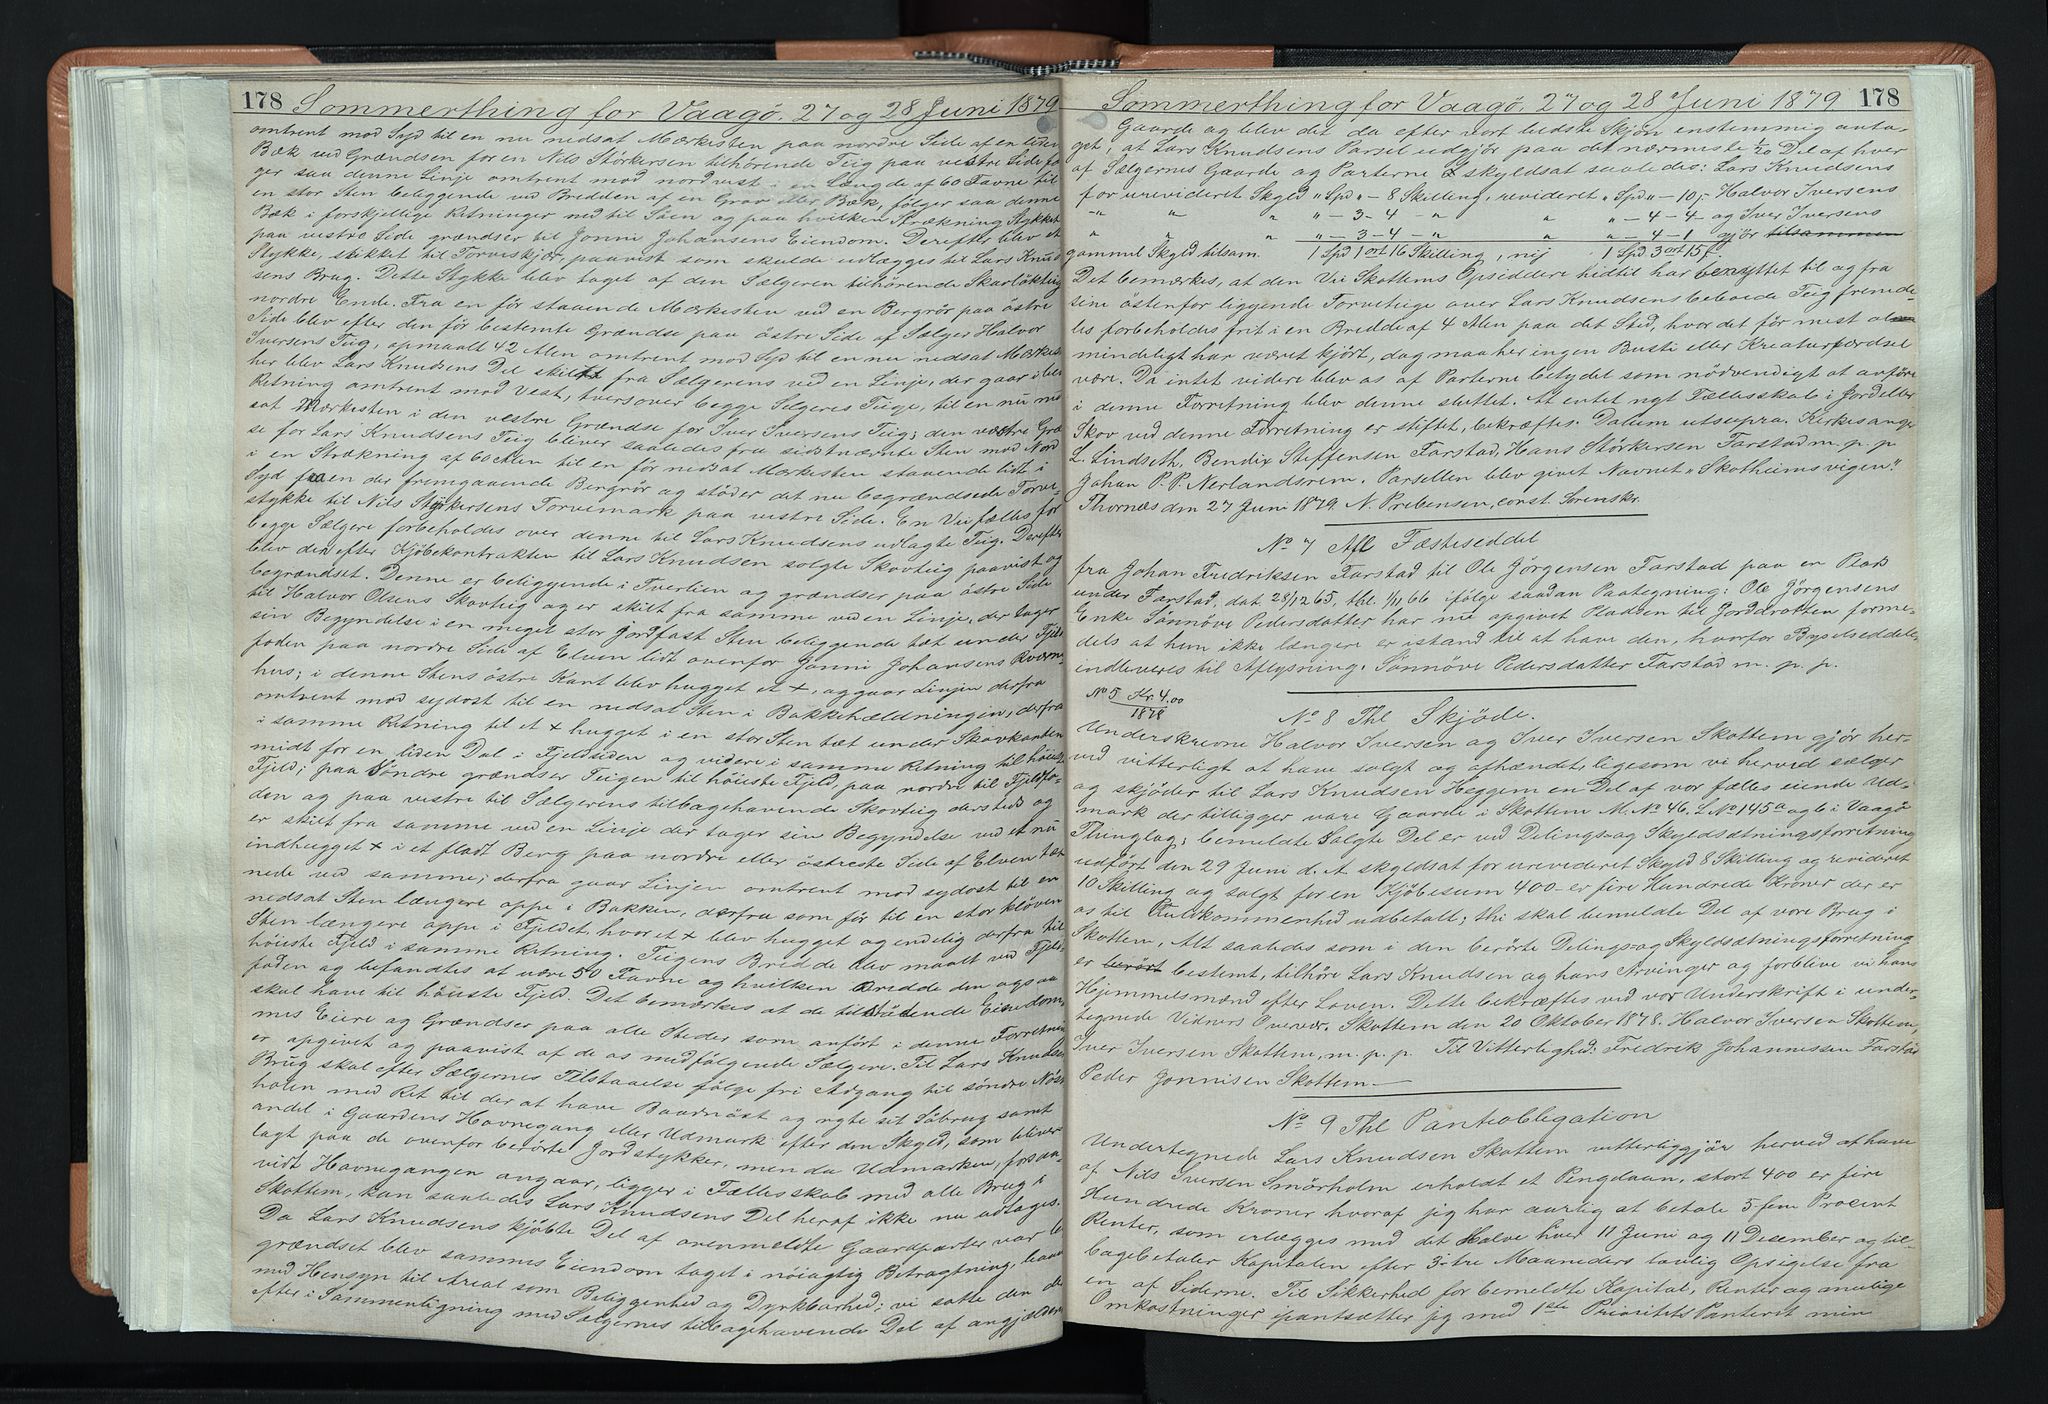 178 Sommerthing for Vaagö. 27 og 28 Juni 1879
omtrent mod Syd til en nu nedsat Mærkesten paa nordre Side af en liden
Bæk ved Grændsen for en Nils Störkersen tilhörende Teig paa vestre Side föl-
ger saa denne Linje omtrent mod nordvest i en Længde af 60 Favne til
en stor Sten beliggende ved Bredden af en Grov eller Bæk, fölger saa denne
Bæk i forskjellige Retninger ned til Söen og paa hvilken Strækning Stykket
paa vestre Side grændser til Jonni Johansens Eiendom. Derefter blev et
Stykke, skikket til Torveskjær, paavist som skulde udlægges til Lars Knud-
sens Brug. Dette Stykke blev taget af den Sælgeren tilhörende Skarlökteig
nordre Ende. Fra en för staaende Mærkesten ved en Bergrör paa östre
Side blev efter den för bestemte Grændse paa östre Side af Sælger Halvor
Iversens Teig, opmaalt 42 Alen omtrent mod Syd til en nu nedsat Mærkesten
her blev Lars Knudsens Del skilt fra Sælgerens ved en Linje, der gaar i
Retning omtrent mod Vest, tvers over begge Sælgeres Teige, til en nu ned-
sat Mærkesten i den vestre Grændse for Iver Iversens Teig; den vestre Græn-
se for Lars Knudsens Teig bliver saaledes fra sidstnævnte Sten mod Nord
i en Strækning af 60 Alen til en för nedsat Mærkesten staaende lidt i
Syd fra en der fremgaaende Bergrör og stöder det nu begrændsede Torve-
stykke til Nils Störkersens Torvemark paa vestre Side. En Vei fælles for
begge Sælgere forbeholdes over denne til Lars Knudsens udlagte Teig. Derefter
blev den efter Kjöbekontrakten til Lars Knudsen solgte Skovteig paavist og
begrændset. Denne er beliggende i Tverlien og grændser paa östre Side
til Halvor Olsens Skovteig og er skilt fra samme ved en Linje, der tager
sin Begyndelse i en meget stor jordfast Sten beliggende tæt under Fjeld-
foden paa nordre Side af Elven lidt ovenfor Jonni Johansens Kværn-
hus; i denne Stens östre Kant blev hugget et +, og gaar Linjen derfra
omtrent mod sydost til en nedsat Sten i Bakkehældningen, derfra
i samme Retning til et + hugget i en stor Sten tæt under Skovkanten
midt for en liden Dal i Fjeldsiden og videre i samme Retning til höieste
Fjeld; paa Söndre grændser Teigen til höieste Fjeld, paa nordre til Fjeldfo-
den og paa vestre til Sælgerens tilbagehavende Skovteig dersteds og
er skilt fra samme ved en Linje der tager sin Begyndelse ved et nu
indhugget + i et fladt Berg paa nordre eller östreste Side af Elven tæt
nede ved samme; derfra gaar Linjen omtrent mod sydost til en
nedsat Sten længere oppe i Bakken, derfra som för til en stor klöven
Sten længere oppe i Fjeldet, hvor et + blev hugget og endelig derfra til
höieste Fjeld i samme Retning. Teigens Bredde blev maalt ved Fjeld-
foden og befandtes at være 50 Favne og hvilken Bredde den ogsaa
skal have til höieste Fjeld. Det bemærkes at de tilstödende Eiendom-
mes Eiere og Grændser paa alle Steder som anfört i denne Forretning
er opgivet og paavist af de os medfölgende Sælgere. Til Lars Knudsens
Brug skal efter Sælgernes Tilstaaelse fölge fri Adgang til söndre Nöst-
holen med Ret til der at have Baadnöst og nyte sit Söbrug samt
andel i Gaardens Havnegang eller Udmark efter den Skyld, som bliver
lagt paa de ovenfor berörte Jordstykker, men da Udmarken, forsaa-
vidt Havnegangen angaar, ligger i Fællesskab med alle Brug i
Skottem, kan saaledes Lars Knudsens Del heraf ikke nu udtages.
Da Lars Knudsens kjöbte Del af ovenmeldte Gaardparter var be-
grændset blev sammes Eiendom taget i nöiagtig Betragtning, baade
med Hensyn til Areal som Beliggenhed og Dyrkbarhed; vi satte den der-
efter i Sammenligning med Sælgernes tilbagehavende Del af angjældende
Sommerthing for Vaagö. 27 og 28 Juni 1879 178
Gaarde og blev det da efter vort bedste Skjön enstemmig anta-
get, at Lars Knudsens Parsel udgjör paa det nærmeste 1/20 Del af hver
af Sælgernes Gaarde og Parterne skyldsat saaledes: Lars Knudsens
for urevideret Skyld „ Spd „ – 8 Skilling, revideret „ Spd „ – 10,- Halvor Iversens
„ „ „ „ – 3 – 4 – „ „ „ – 4 – 4 – og Iver Iversens
„ „ „ „ – 3 – 4 – „ „ „ – 4 – 1 gjör tilsammen
gammel Skyld tilsam. 1 Spd 1 ort 16 Skilling, nij 1 Spd 3 ort 15 ß.
Det bemærkes, at den Vei Skottems Opsiddere hidtil har benyttet til og fra
sine östenfor liggende Torveteige over Lars Knudsens beboede Teig fremde-
les forbeholdes frit i en Bredde af 4 Alen paa det Sted, hvor det för mest al-
mindeligt har været kjört, dog maa her ingen Busti eller Kreaturfærdsel
være. Da intet videre blev os af Parterne betydet som nödvendigt at anföre
i denne Forretning blev denne sluttet. At intet nyt Fællesskab i Jord eller
Skov ved denne Forretning er stiftet, bekræftes. Datum utsupra. Kirkesanger
L. Lindseth, Bendix Steffensen Farstad, Hans Störkersen Farstad m. p. p.
Johan P. P. Nerlandsrem. Parsellen blev givet Navnet „Skotheimsvigen".
Thornæs den 27 Juni 1879. N. Prebensen, const. Sorenskr.
No 7 Afl Fæsteseddel
fra Johan Fredriksen Farstad til Ole Jörgensen Farstad paa en Plads
under Farstad, dat 28/12 65, thl. 1/11 66 ifölge saadan Paategning: Ole Jörgensens
Enke Sönnöve Pedersdatter har nu opgivet Pladsen til Jorddrotten forme-
dels at hun ikke længere er istand til at have den, hvorfor Bygselseddelen
indleveres til Aflysning. Sönnöve Pedersdatter Farstad m. p. p.
No 5 Kr. 4,00
1878
No 8 Thl Skjöde.
Underskrevne Halvor Iversen og Iver Iversen Skottem gjör her-
ved vitterligt at have solgt og afhændet, ligesom vi herved sælger
og skjöder til Lars Knudsen Heggem en Del af vor fælles eiende Ud-
mark der tilligger vore Gaarde i Skottem M. No 46. L No 145a og b i Vaagö
Thinglag; bemeldte Solgte Del er ved Delings- og Skyldsætningsforretning
udfört den 29 Juni d. A skyldsat for urevideret Skyld 8 Skilling og revideret
10 Skilling og solgt for en Kjöbesum 400 – er fire Hundrede Kroner der er
os til Fuldkommenhed udbetalt; thi skal bemeldte Del af vore Brug i
Skottem, Alt saaledes som i den berörte Delings- og Skyldsætningsforretning
er berört bestemt, tilhöre Lars Knudsen og hans Arvinger og forblive vi hans
Hjemmelsmænd efter Loven. Dette bekræftes ved vor Underskrift i under-
tegnede Vidners Overvær. Skottem den 20 Oktober 1878. Halvor Iversen Skottem,
Iver Iversen Skottem, m. p. p. Til Vitterlighed: Fredrik Johannessen Farstad
Peder Jonnisen Skottem. –
No 9 Thl Panteobligation
Undertegnede Lars Knudsen Skottem vitterliggjör herved at have
af Nils Iversen Smörholm erholdt et Pengelaan, stort 400 er fire
Hundrede Kroner hvoraf jeg har aarlig at betale 5-fem Procent
Renter, som erlægges med det Halve hver 11 Juni og 11 Desember og til-
bagebetaler Kapitalen efter 3-tre Maaneders lovlig Opsigelse fra
en af Siderne. Til Sikkerhed for bemeldte Kapital, Renter og mulige
Omkostninger ipantsætter jeg med 1ste Prioritets Panteret min